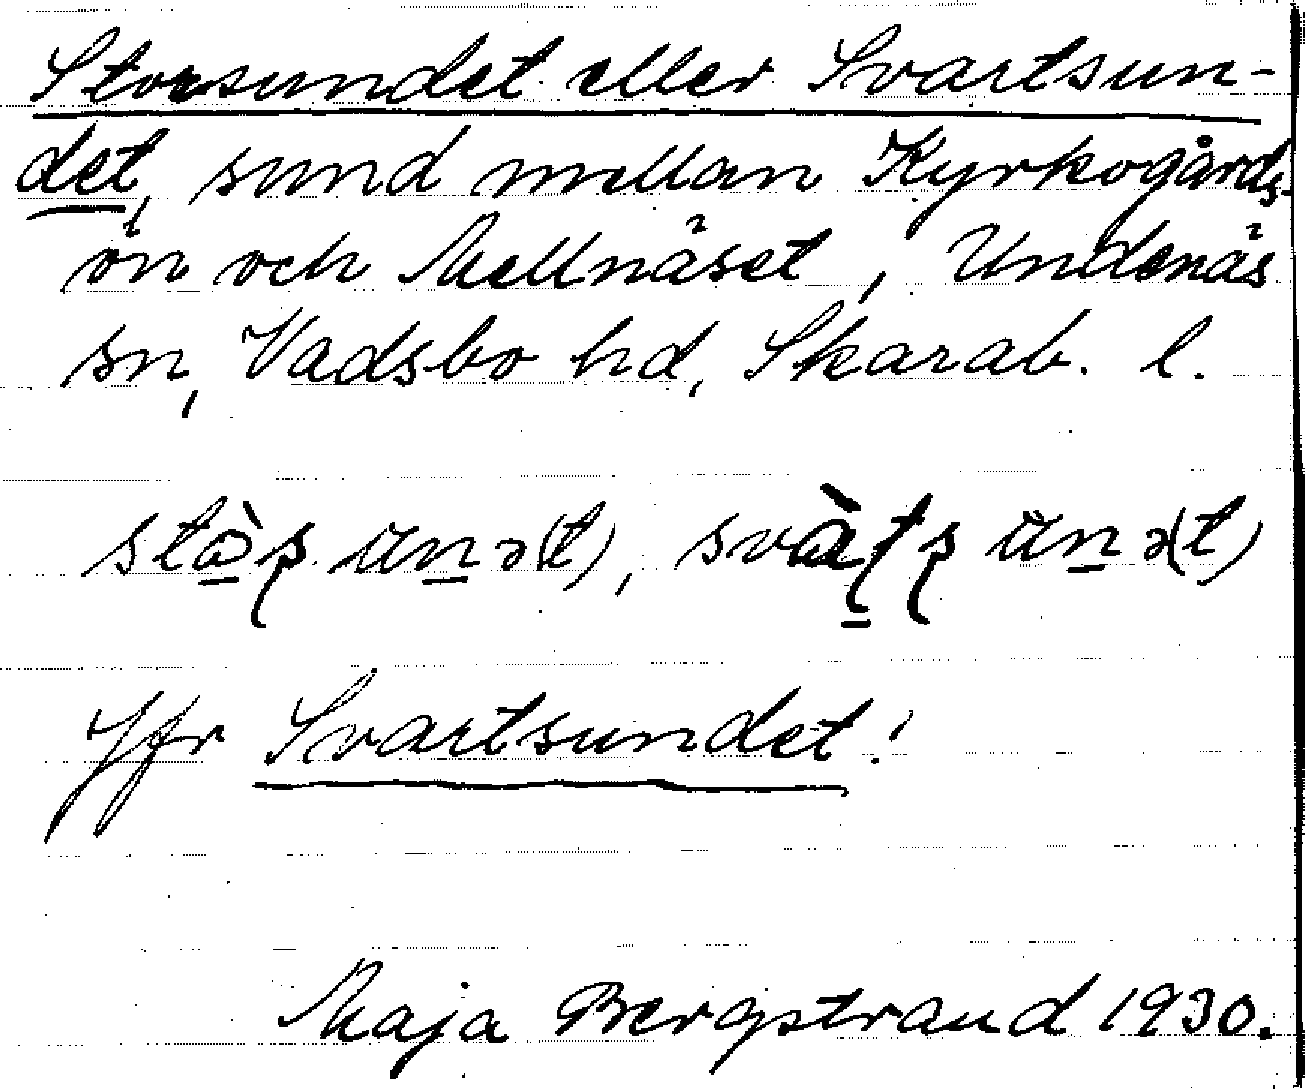 Storsundet eller Svartsun-
det, sund mellan Kyrkogårds-
ön och Mellnäset, Undenäs
sn, Vadsbo hd, Skarab. l.
Jfr Svartsundet!
Maja Bergstrand 1930.